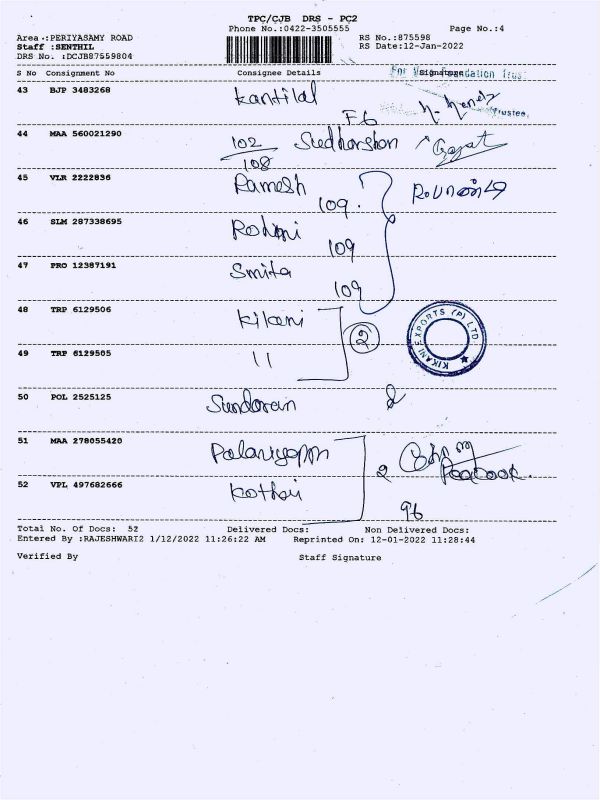 TPC/CJB DRS - PC2
Phone No.:0422-3505555 Page No.:4
Area .:PERIYASAMY ROAD RS No.:875598
Staff :SENTHIL RS Date:12-Jan-2022
DRS No. :DCJB87559804
S No Consignment No Consignee Details Signature
For Foundation Trust
43 BJP 3483268 Kantilal
F6 Trustee.
44 MAA 560021290 102 Sudharshan
108
45 VLR 2222836 Ramesh
109.
46 SLM 287338695 Rohini
109
47 PRO 12387191 Smita
109
48 TRP 6129506 Kikani 2
KIKANI EXPORTS (P) LTD
49 TRP 6129505 11
50 POL 2525125 Sundaran
51 MAA 278055420 Palaniyappn
2
52 VPL 497682666 Kothari
96
Total No. Of Docs: 52 Delivered Docs: Non Delivered Docs:
Entered By :RAJESHWARI2 1/12/2022 11:26:22 AM Reprinted On: 12-01-2022 11:28:44
Verified By Staff Signature